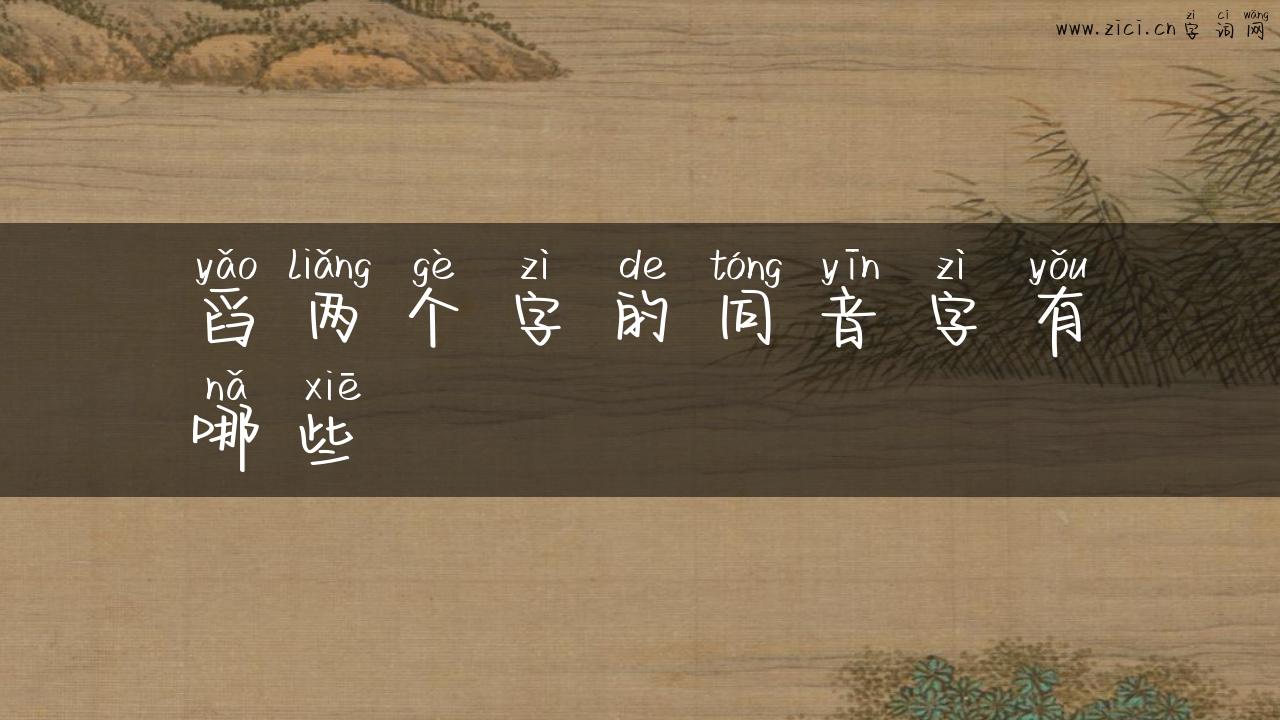 www.zici.cn字词网
zì cí wǎng
yǎo liǎng gè zì de tóng yīn zì yǒu
舀两个字的同音字有
nǎ xiē
哪些